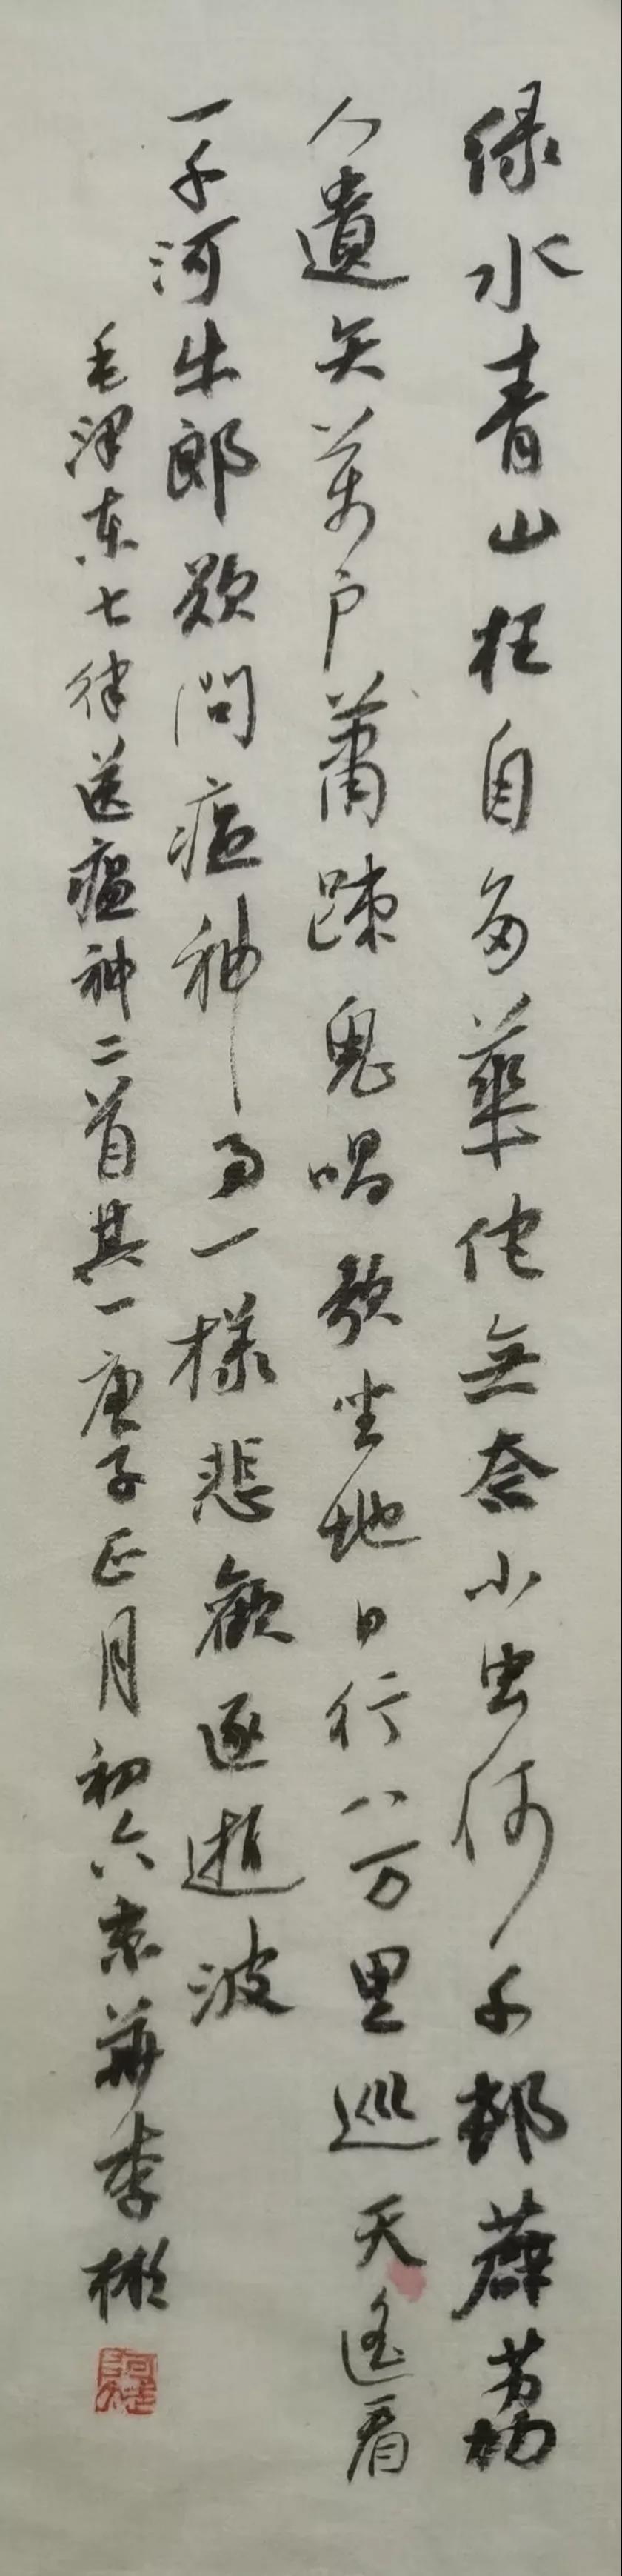 绿水青山枉自多華佗無奈小虫何千邨薜荔
人遺矢萬户蕭踈鬼唱歌坐地日行八万里巡天遥看
一千河牛郎欲問瘟神事一樣悲歡逐逝波
毛泽东七律送瘟神二首其一庚子正月初六京華李彬